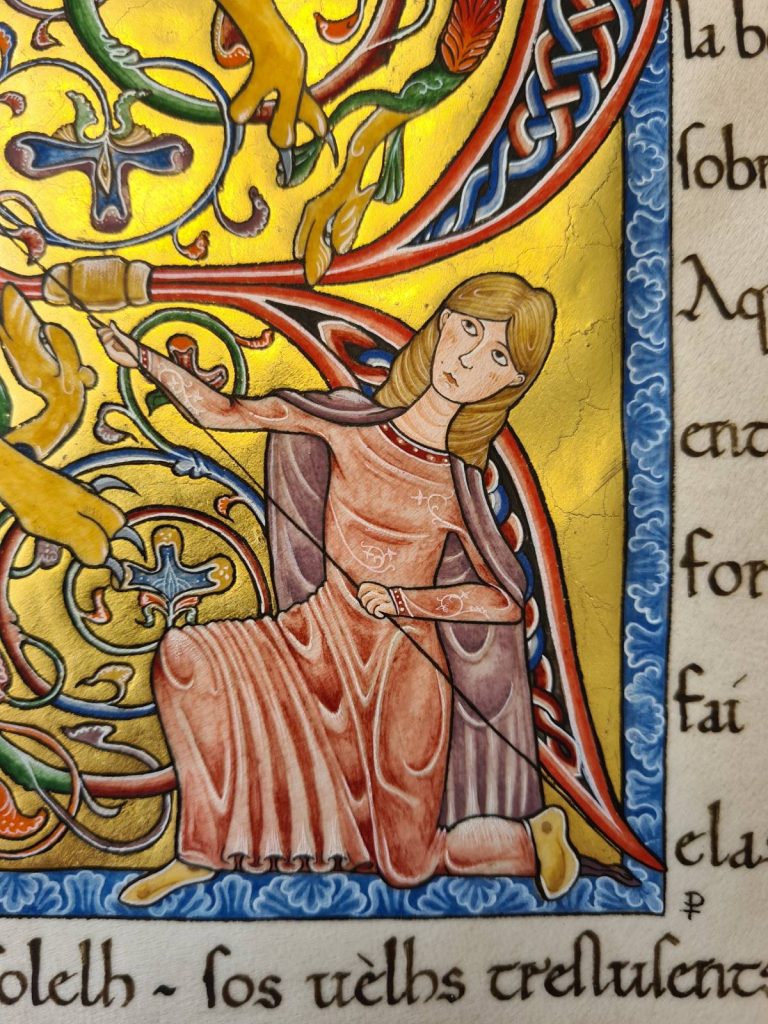 la be
ſobr
Aq
ent
for
fai
elas
olelh ~ ſos uèlhs treſluſents